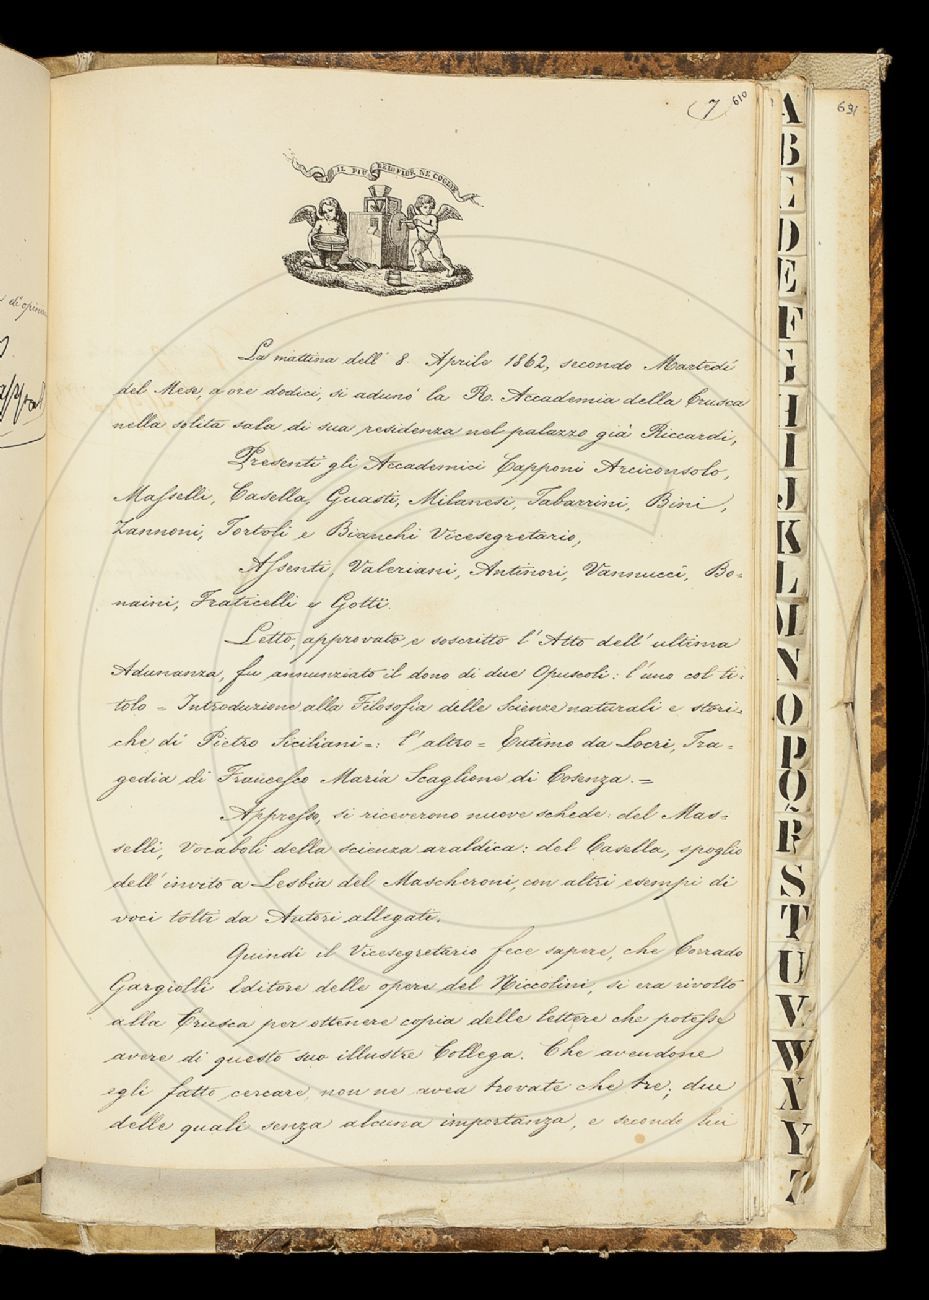 7 610
691
IL PIU BEL FIOR NE COGLIE
di opin
La mattina dell' 8. Aprile 1862, secondo Martedì
del Mese, a ore dodici, si adunò la R. Accademia della Crusca
nella solita sala di sua residenza nel palazzo già Riccardi,
Presenti gli Accademici Capponi Arciconsolo,
Masselli, Casella, Guasti, Milanesi, Tabarrini, Bini,
Zannoni, Tortoli e Bianchi Vicesegretario,
Assenti, Valeriani, Antinori, Vannucci, Bo=
naini, Fraticelli e Gotti.
Letto, approvato e soscritto l'Atto dell' ultima
Adunanza, fu annunziato il dono di due Opuscoli: l'uno col ti=
tolo = Introduzione alla Filosofia delle Scienze naturali e stori=
che di Pietro Siciliani =: l'altro = Eutimo da Locri, Tra=
gedia di Francesco Maria Scaglione di Cosenza. =
Appresso, si riceverono nuove schede: del Mas=
selli, Vocaboli della scienza araldica: del Casella, spoglio
dell' invito a Lesbia del Mascheroni, con altri esempi di
voci tolti da Autori allegati.
Quindi il Vicesegretario fece sapere, che Corrado
Gargiolli Editore delle opere del Niccolini, si era rivolto
alla Crusca per ottenere copia delle lettere che potesse
avere di questo suo illustre Collega. Che avendone
egli fatto cercare, non ne avea trovate che tre; due
delle quali senza alcuna importanza, e secondo lui
A
B
C
D
E
F
G
H
I
J
K
L
M
N
O
P
Q
R
S
T
U
V
W
X
Y
Z